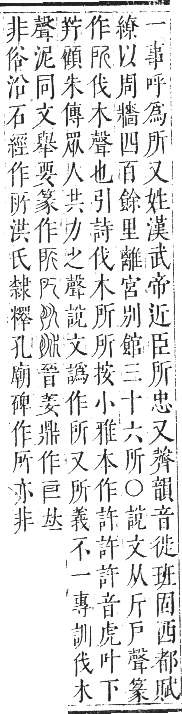 一事呼為所又姓漢武帝近臣所忠又薺韻音徙班固西都賦
繚以周牆四百餘里離宮別館三十六所○說文从斤戶聲篆
作所伐木聲也引詩伐木所所按小雅本作許許許音虎叶下
羜顧朱傳眾人共力之聲說文譌作所又所義不一專訓伐木
聲泥同文舉要篆作晉姜鼎作巨𠀤
非俗沿石經作所洪氏隸釋孔廟碑作所亦非